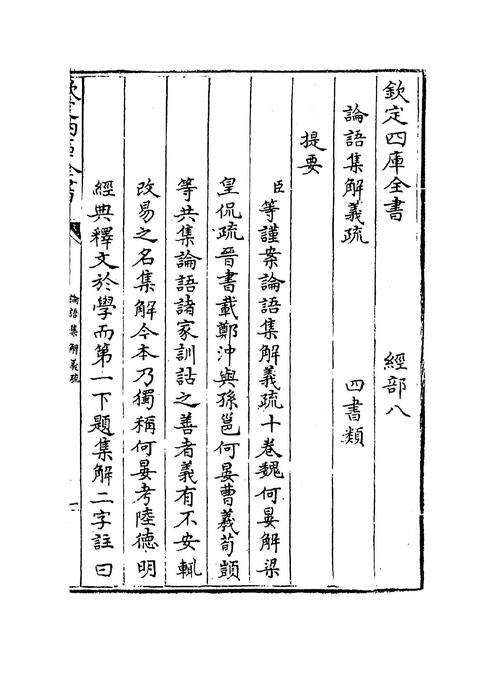 欽定四庫全書 經部八
論語集解義疏 四書類
提要
臣等謹案論語集解義疏十卷魏何晏解梁
皇侃疏晉書載鄭沖與孫邕何晏曹羲荀顗
等共集論語諸家訓詁之善者義有不安輒
改易之名集解今本乃獨稱何晏考陸德明
經典釋文於學而第一下題集解二字註曰
欽定四庫全書
論語集解義疏
一